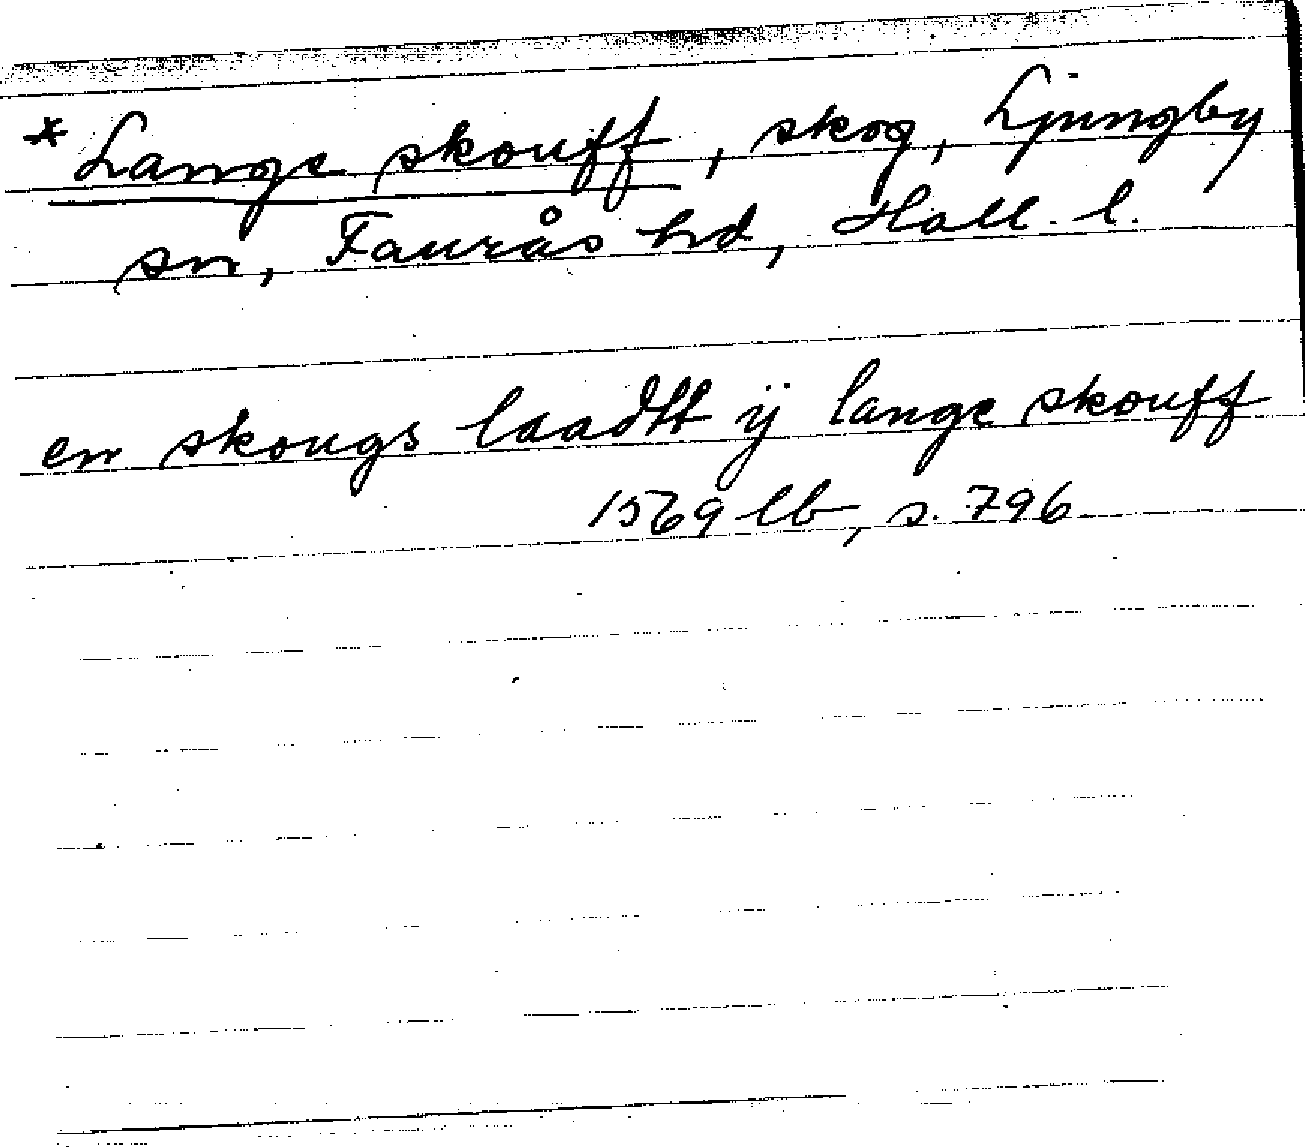 * Lange skouff, skog, Ljungby
sn, Faurås hd, Hall. l.
en skougs laadtt ÿ lange skouff
1569 lb, s. 796